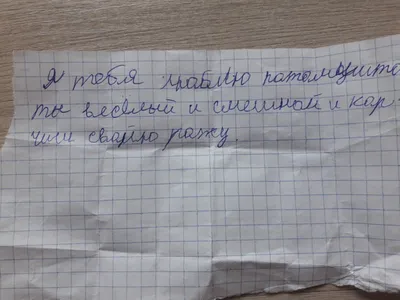 Я тебя люблю патамушто
ты весёлый и смешной и кар-
чиш сваю рожу.